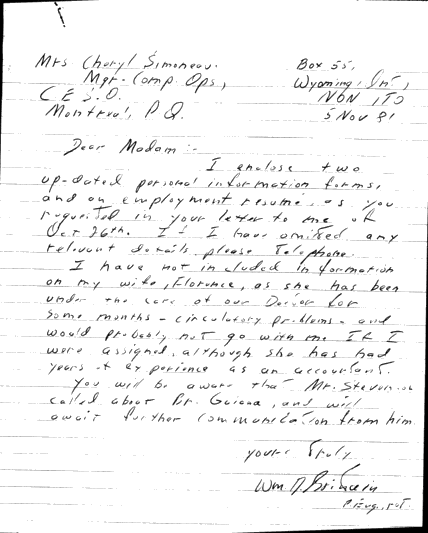 Mrs Cheryl Simoneau.
Mgr- Comp. Ops,
C E S.O.
Montreal, P.Q.
Box 55,
Wyoming, Ont,
N0N 1T0
5 Nov 81
Dear Madam :-
I enclose two
up-dated personal information forms,
and an employment resume, as you
requested in your letter to me of
Oct 26th. If I have omitted any
relevant details, please Telephone.
I have not included Information
on my wife, Florence, as she has been
under the care of our Doctor for
some months - circulatory problems - and
would probably not go with me If I
were assigned, although she has had
years of experience as an accountant.
You will be aware that Mr. Stevenson
called about Br. Guiana, and will
await further communication from him.
yours Truly
Wm. D. Britain
P. Eng,